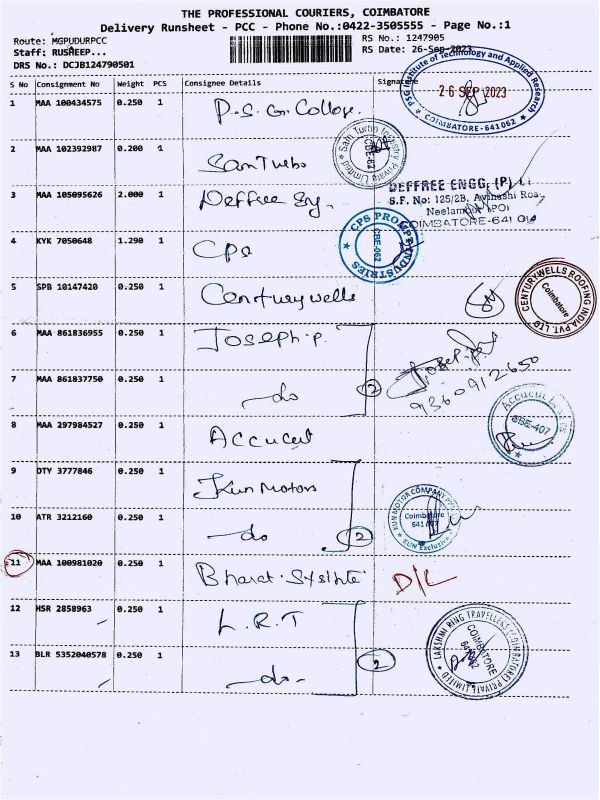 THE PROFESSIONAL COURIERS, COIMBATORE
Delivery Runsheet - PCC - Phone No.:0422-3505555 - Page No.:1
Route: MGPUDURPCC RS No.: 1247905
Staff: RUSHEEP... RS Date: 26-Sep-2023
DRS No.: DCJB124790501
S No Consignment No Weight PCS Consignee Details Signature
PSG Institute of Technology and Applied Research
26 SEP 2023
COIMBATORE-641062
1 MAA 100434575 0.250 1 P.S.G. College.
2 MAA 102392987 0.200 1 Sam Turbo
Sam Turbo Industry Private Limited
CBE-62
3 MAA 105095626 2.000 1 Deffree Eng.
DEFFREE ENGG. (P) Lt
S.F. No: 125/2B, Avinashi Roa
Neelambur (PO)
COIMBATORE-641
4 KYK 7050648 1.290 1 CPS
CPS PROMPT INDUSTRIES
CBE-062
5 SPB 10147420 0.250 1 Centurywells
CENTURYWELLS ROOFING INDIA PVT. LTD.
Coimbatore
6 MAA 861836955 0.250 1 Joseph.p.
7 MAA 861837750 0.250 1 do 2
9360912650
8 MAA 297984527 0.250 1 Accucut
Accucut
CBE-407
9 DTY 3777846 0.250 1 Kun Motors
10 ATR 3212160 0.250 1 do 2
KUN MOTOR COMPANY
Coimbatore
KUN Exclusive
11 MAA 100981020 0.250 1 Bharat D/L
12 HSR 2858963 0.250 1 L.R.T
13 BLR 5352040578 0.250 1 do 2
LAKSHMI RING TRAVELLERS (COIMBATORE) PRIVATE LIMITED
COIMBATORE